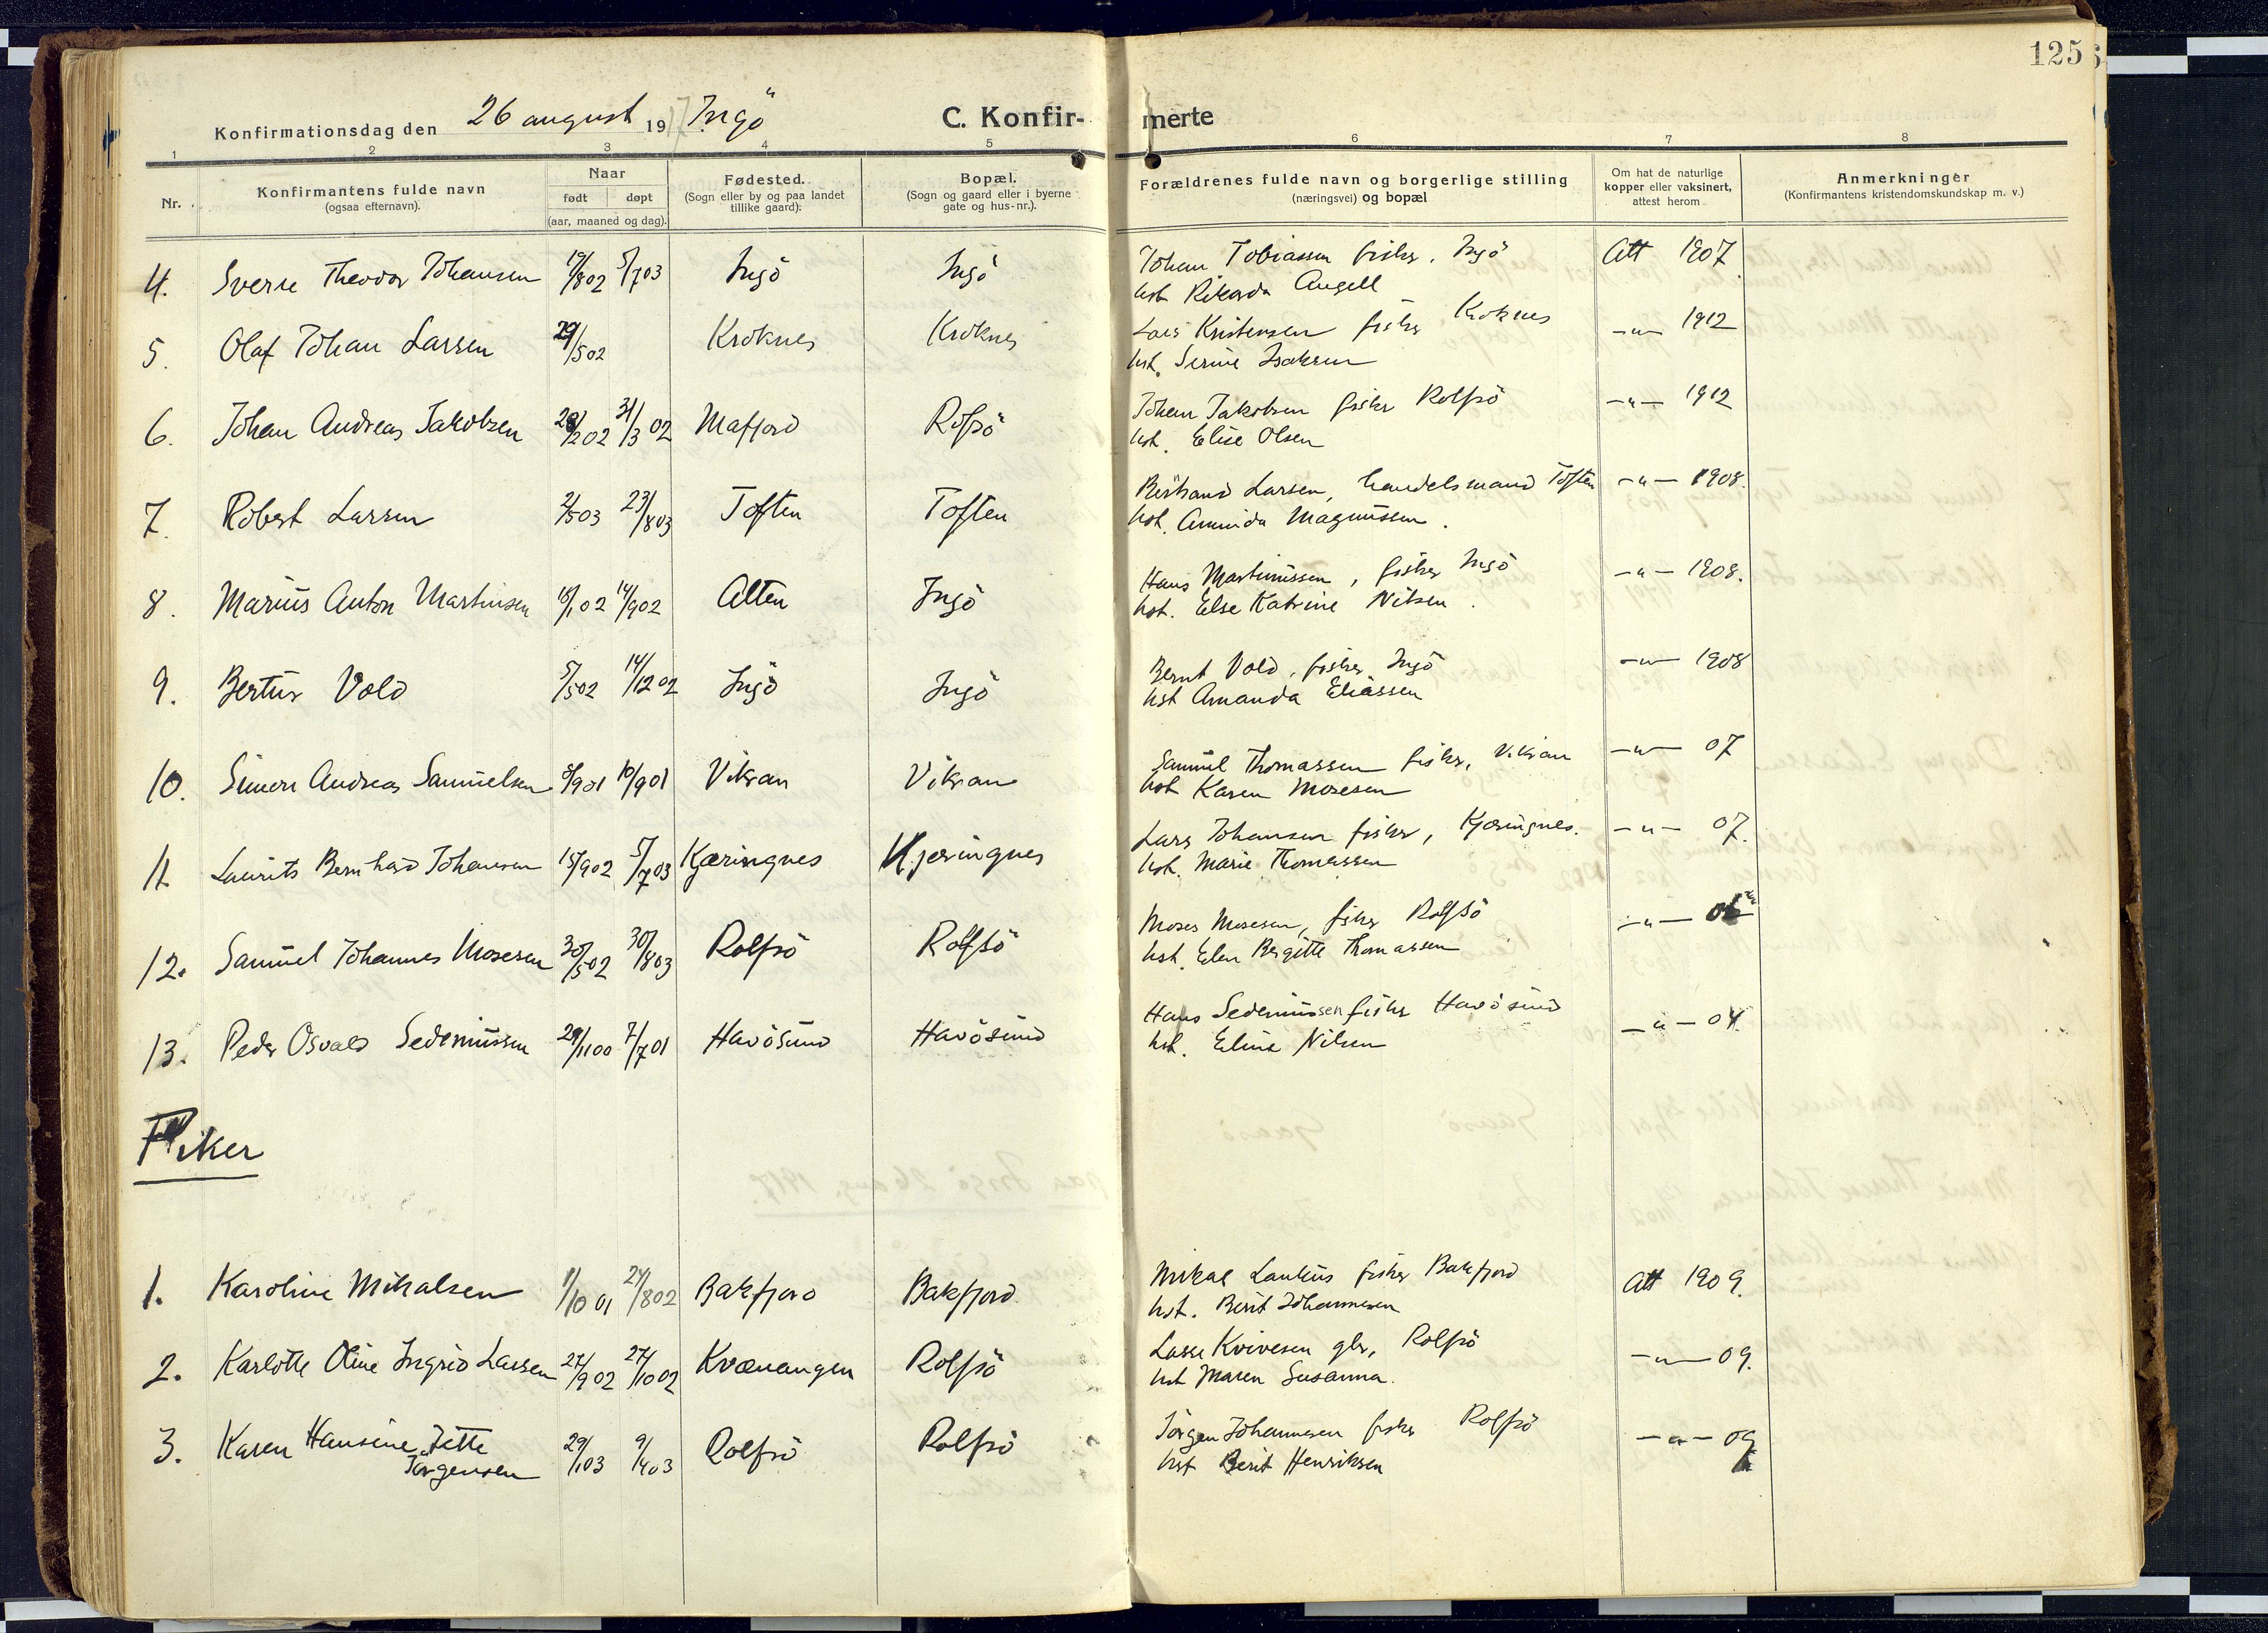 125
Konfirmationsdag den 26 august 1917 Ingö C. Konfir- merte
1 2 3 4 5 6 7 8
Nr. Konfirmantens fulde navn (ogsaa efternavn). Naar født døpt (aar, maaned og dag). Fødested. (Sogn eller by og paa landet tillike gaard). Bopæl. (Sogn og gaard eller i byerne gate og hus-nr.). Forældrenes fulde navn og borgerlige stilling (næringsvei) og bopæl Om hat de naturlige kopper eller vaksinert, attest herom Anmerkninger (Konfirmantens kristendomskundskap m. v.)
4. Sverre Theodor Johansen 19/802 5/703 Ingö Ingö Johan Tobiassen fisker, Ingö Att 1907
hst Rikarda Angell
5. Olaf Johan Larsen 29/502 Kroknes Kroknes Lars Kristensen fisker Kroknes -"- 1912
hst. Serine Isaksen
6. Johan Andreas Jakobsen 28/202 31/302 Mafjord Rolfsö Johan Jakobsen fisker Rolfsö -"- 1912
hst. Elise Olsen
7. Robert Larsen 2/503 23/803 Toften Toften Larsen, handelsmand Toften -"- 1908.
hst. Aminda Magnussen.
8. Marius Anton Martinsen 18/102 14/902 Alten Ingö Hans Martinussen, fisker Ingö -"- 1908.
hst. Else Katrine Nilsen.
9. Bertus Vold 5/502 14/1202 Ingö Ingö Bernt Vold, fisker, Ingö -"- 1908
hst Amanda Eliassen
10. Simon Andreas Samuelsen 8/901 10/901 Vikran Vikran Samuel Thomassen fisker, Vikran -"- 07
hst Karen Mosesen
11. Laurits Bernhard Johansen 15/902 5/703 Kjæringnes Kjæringnes Lars Johansen fisker, Kjæringnes. -"- 07.
hst. Marie Thomassen
12. Samuel Johannes Mosesen 30/502 30/803 Rolfsö Rolfsö Moses Mosesen, fisker Rolfsö -"-
hst. Elen Bergitte Thomassen
13. Peder Osvald Sedeniussen 29/1100 7/701 Havösund Havösund Hans Sedeniussen fisker Havösund -"- 04.
hst. Eline Nilsen
Piker
1. Karoline Mikalsen 1/1001 24/802 Bakfjord Bakfjord. Mikal Lankius fisker Bakfjord Att 1909.
hst. Berit Johannesen
2. Karlotte Oline Ingrid Lassen 27/902 27/1002 Kvænangen Rolfsö Lasse Kvivesen gbr, Rolfsö -"- 09.
hst Maren Susanna.
3. Karen Hansine Jette Jörgensen 29/103 9/403 Rolfsö Rolfsö Jörgen Johannesen fisker Rolfsö -"- 09
hst Berit Henriksen